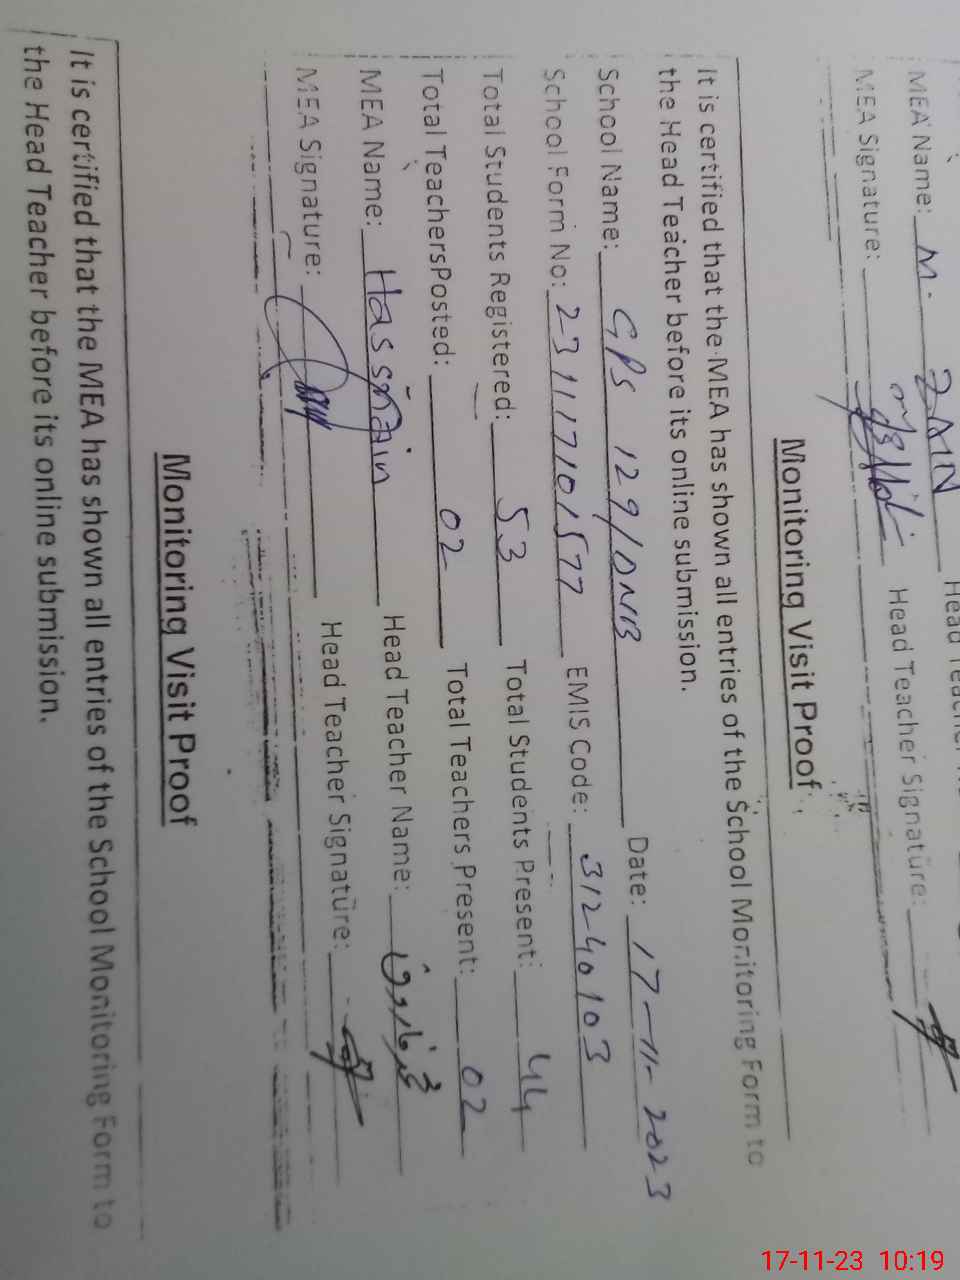 MEA Name: M. ZAIN Head Teacher
MEA Signature: Head Teacher Signature:
Monitoring Visit Proof
It is certified that the MEA has shown all entries of the School Monitoring Form to
the Head Teacher before its online submission.
School Name: GPS 129/DNB Date: 17-11-2023
School Form No: 231117101577 EMIS Code: 31240103
Total Students Registered: 53 Total Students Present: 44
Total TeachersPosted: 02 Total Teachers Present: 02
MEA Name: Hassnain Head Teacher Name:
MEA Signature: Head Teacher Signature:
Monitoring Visit Proof
It is certified that the MEA has shown all entries of the School Monitoring Form to
the Head Teacher before its online submission.
17-11-23 10:19